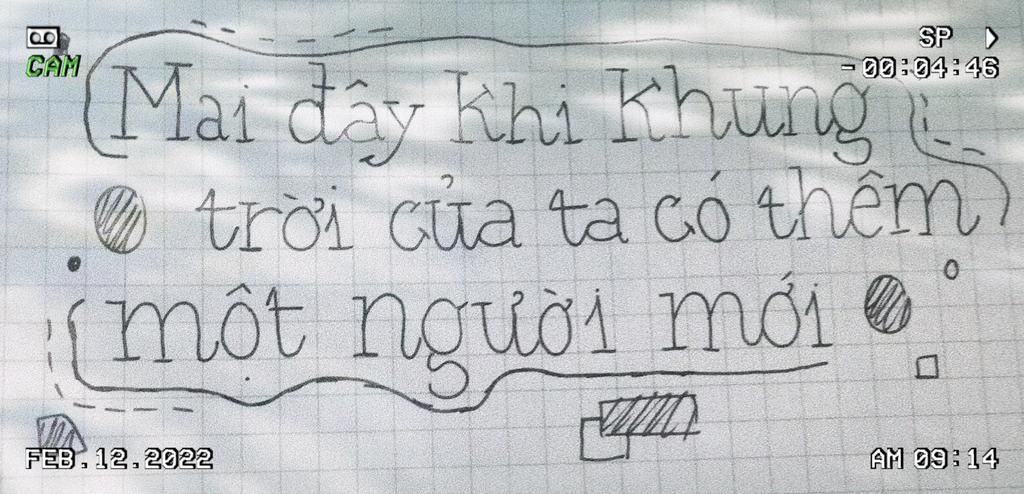 SP
CAM
-00:04:46
Mai đây khi khung
trời của ta có thêm
một người mới
FEB.12.2022
AM 09:14